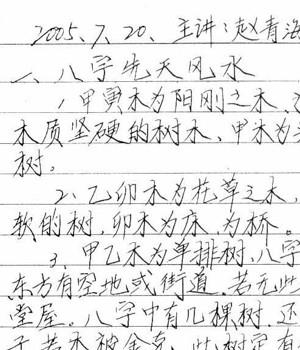 2005.7.20、主讲:赵青海
一、八字先天风水
1、甲寅木为阳刚之木,
木质坚硬的树木、甲木为
树。
2、乙卯木为花草之木,
软的树,卯木为床、为桥。
3、甲乙木为单排树,八字
东方有空地或街道,若无此
堂屋。八字中有几棵树,还
若木被金克,此树定有